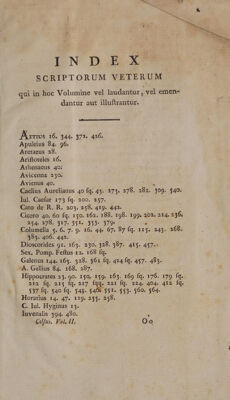 INDEX
SCRIPTORUM VETERUM
qui in hoc Volumine vel laudantur, vel emen-
dantur aut illustrantur.
AETIUS 16. 344. 372. 426.
Apuleius 84. 96.
Aretaeus 28.
Aristoteles 16.
Athenaeus 40.
Avicenna 230.
Avienus 40.
Caelius Aurelianus 40 sq. 43. 273. 278. 282. 309. 540.
Iul. Caesar 173 sq. 200. 257.
Cato de R. R. 203. 258. 419. 442.
Cicero 40. 60 sq. 150. 162. 188. 198. 199. 202. 214. 236.
254. 278. 317. 351. 353. 379.
Columella 5. 6. 7. 9. 16. 44. 67. 87 sq. 115. 243. 268.
383. 406. 442.
Dioscorides 91. 163. 230. 328. 387. 415. 457.
Sex. Pomp. Festus 12. 168 sq.
Galenus 144. 165. 328. 361 sq. 414 sq. 457. 483.
A. Gellius 84. 168. 287.
Hippocrates 23. 90. 152. 159. 163. 169 sq. 176. 179 sq.
212 sq. 215 sq. 217 sqq. 221 sq. 224. 404. 412 sq.
537 sq. 540 sq. 543. 546. 551. 553. 560. 564.
Horatius 14. 47. 129. 255. 258.
C. Iul. Hyginus 13.
Iuvenalis 394. 480.
Celsus. Vol. II. Oo